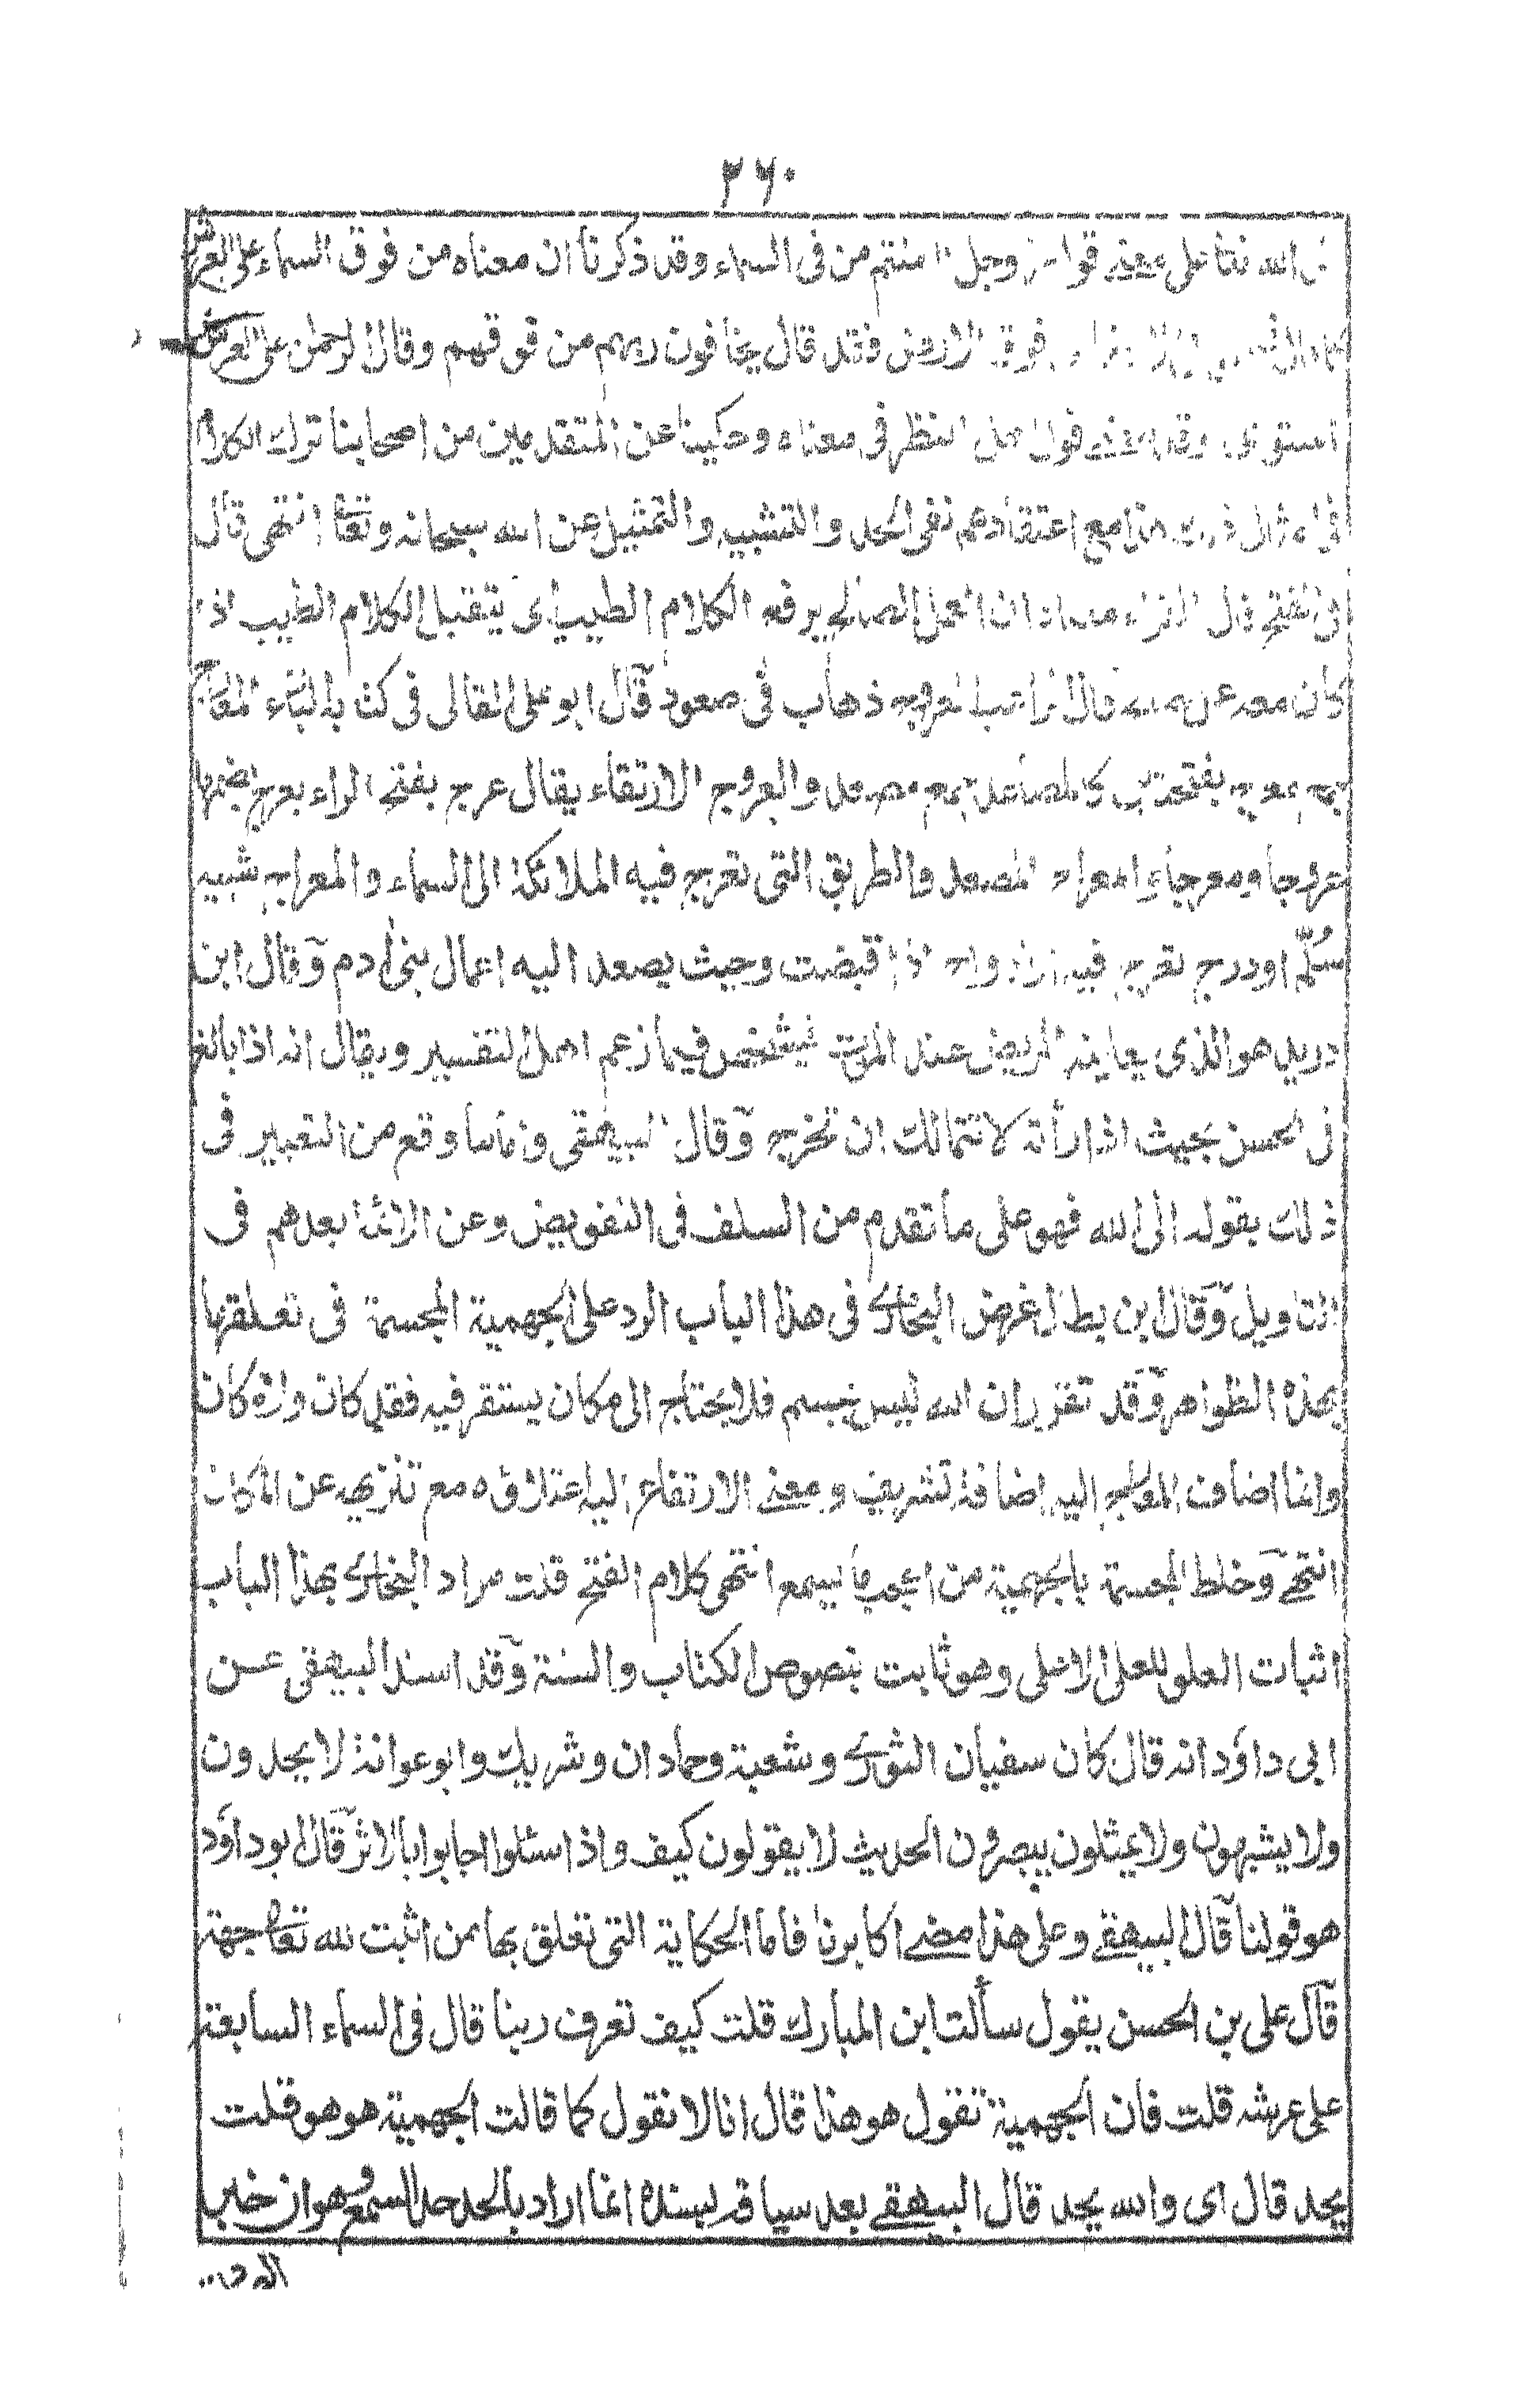 ٣٦٠
الله تعا على معنے قوله وجل ءامنتم من فى السماء وقد ذكرنا ان معناه من فوق السماء على العرش
فوق الارض فقد قال يخافون ربهم من فوقهم وقال الرحمن على العرش
استوى فى معناه وحكينا عن المتقدمين من اصحابنا ترك الكلام
فى هذا مع اعتقادهم نفى الحد والتشبيه والتمثيل عن الله سبحانه وتعا انتهى قال
فى الفتح قال الفراء معناه ان العمل الصالح يرفع الكلام الطيب اى يتقبل الكلام الطيب اذا
كان معه عمل قال الراغب العروج ذهاب فى صعود قال ابو على القالى فى كتابه البارع المعارج
جمع معرج بفتحتين كالمصاعد جمع مصعد والعروج الارتقاء يقال عرج بفتح الراء يعرج بضمها
عروجا ومعرجا والمعراج المصعد والطريق التى تعرج فيه الملائكة الى السماء والمعراج شبيه
سُلّم اودرج تعرج فيه الارواح اذا قبضت وحيث يصعد اليه اعمال بنى ادم وقال ابن
دريد هو الذى يعاينه المريض عند الموت فيشخص فيما زعم اهل التفسير ويقال انه اذا بالغ
فى الحسن بحيث اذا رأته لا تتمالك ان تخرج وقال البيهقى وقع من التعبير فى
ذلك بقوله الى الله فهو على ما تقدم من السلف فى التفويض وعن الائمة بعدهم فى
التاويل وقال ابن بطال غرض البخارى فى هذا الباب الرد على الجهمية المجسمة فى تعلقها
بهذه الظواهر وقد تقرر ان الله ليس بجسم فلا يحتاج الى مكان يستقر فيه فقد كان ولا مكان
وانما اضاف المعارج اليه اضافة تشريف ومعنے الارتفاع اليه اعتلاؤه مع تنزيهه عن المكان
انتهٰے وخلط المجسمة بالجهمية من اعجب ما يسمع انتهى كلام الفتح قلت مراد البخارى بهذا الباب
اثبات العلو للعلى الاعلى وهو ثابت بنصوص الكتاب والسنة وقد اسند البيهقى عن
ابى داؤد انه قال كان سفيان الثورى وشعبة وحمادان وشريك وابوعوانة لا يحدون
ولا يشبهون ولا يمثلون يبصرون الحديث لا يقولون كيف واذا سئلوا اجابوا بالاثر قال ابوداؤد
هو قولنا قال البيهقے وعلى هذا مضے اكابرنا فاما الحكاية التى تعلق بها من اثبت لله تعا جهة
قال على بن الحسن يقول سألت ابن المبارك قلت كيف تعرف ربنا قال فى السماء السابعة
على عرشه قلت فان الجهمية تقول هو هذا قال انا لا نقول كما قالت الجهمية هو هو قلت
يحد قال اى والله يحد قال البيهقے بعد سياقه بسنده انما اراد بالحد حد السمع وهو ان خبر